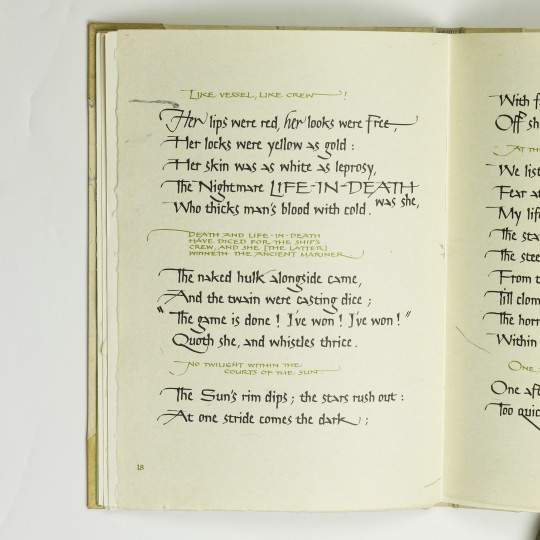 LIKE VESSEL, LIKE CREW!
Her lips were red, her looks were free,
Her locks were yellow as gold:
Her skin was as white as leprosy,
The Nightmare LIFE-IN-DEATH was she,
Who thicks man's blood with cold.
DEATH AND LIFE-IN-DEATH
HAVE DICED FOR THE SHIP'S
CREW, AND SHE (THE LATTER)
WINNETH THE ANCIENT MARINER
The naked hulk alongside came,
And the twain were casting dice;
"The game is done! I've won! I've won!"
Quoth she, and whistles thrice.
NO TWILIGHT WITHIN THE
COURTS OF THE SUN
The Sun's rim dips; the stars rush out:
At one stride comes the dark;
18
With
Off
AT
We
Fear
My
The
The
From
Till
The
Within
ONE
One
Too